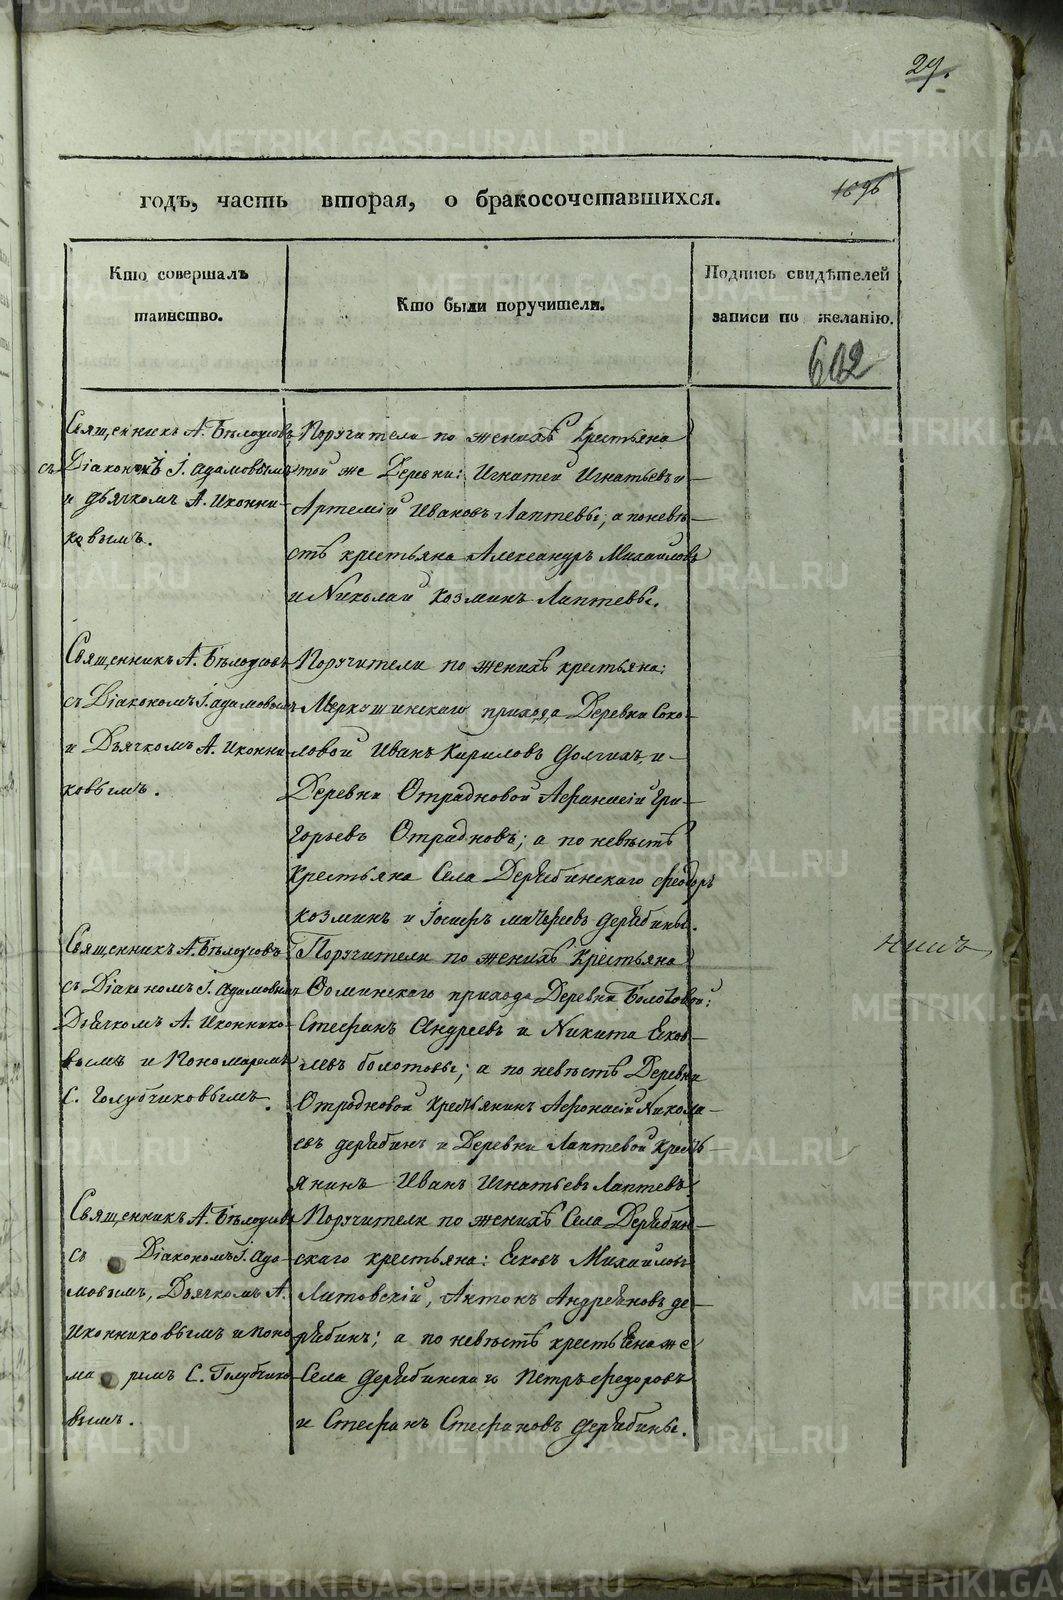 29.
1096
годъ, часть вторая, о бракосочетавшихся.
Кто совершалъ
таинство.
Кто были поручители.
Подпись свидѣтелей
записи по желанію.
602
Священникъ А. Бѣлоусовъ
съ Діакономъ І. Адамовымъ
и дьячкомъ А. Иконни-
ковымъ.
Поручители по женихѣ Крестьяна
той же Деревни: Игнатей Игнатьевъ и
Артемій Ивановъ Лаптевы; а по невѣ-
стѣ крестьяна Александръ Михайловъ
и Николай Козминъ Лаптевы.
Священникъ А. Бѣлоусовъ
съ Діакономъ І. Адамовымъ
и Дьячкомъ А. Иконни-
ковымъ.
Поручители по женихѣ крестьяна:
Меркушинскаго прихода Деревни Соко-
ловой Иванъ Кириловъ Долгихъ, и
Деревни Отрадновой Афанасій Гри-
горьевъ Отрадновъ; а по невѣстѣ
Крестьяна Села Дерябинскаго Феодоръ
Козминъ и Іосифъ Матфеевъ Дерябины.
Священникъ А. Бѣлоусовъ
съ Діакономъ І. Адамовымъ
Дьячкомъ А. Иконнико-
вымъ и Пономаремъ
С. Голубчиковымъ.
Поручители по женихѣ Крестьяна
Фоминскаго прихода Деревни Болотовой:
Стефанъ Андреевъ и Никита Яков-
левъ Болотовы; а по невѣстѣ Деревни
Отродновой Крестьянинъ Афонасій Никола-
евъ Дерябинъ и Деревни Лаптевой Кресть-
янинъ Иванъ Игнатьевъ Лаптевъ.
нимъ
Священникъ А. Бѣлоусовъ
съ Діакономъ І. Ада-
мовымъ, Дьячкомъ А.
Иконниковымъ и поно
ма ремъ С. Голубчико-
вымъ.
Поручители по женихѣ Села Дерябин-
скаго крестьяна: Яковъ Михайловъ
Литовскій, Антонъ Андреяновъ Де-
рябинъ; а по невѣстѣ крестьяна же
Села Дерябинскаго Петръ Федоровъ
и Стефанъ Стефановъ Дерябины.